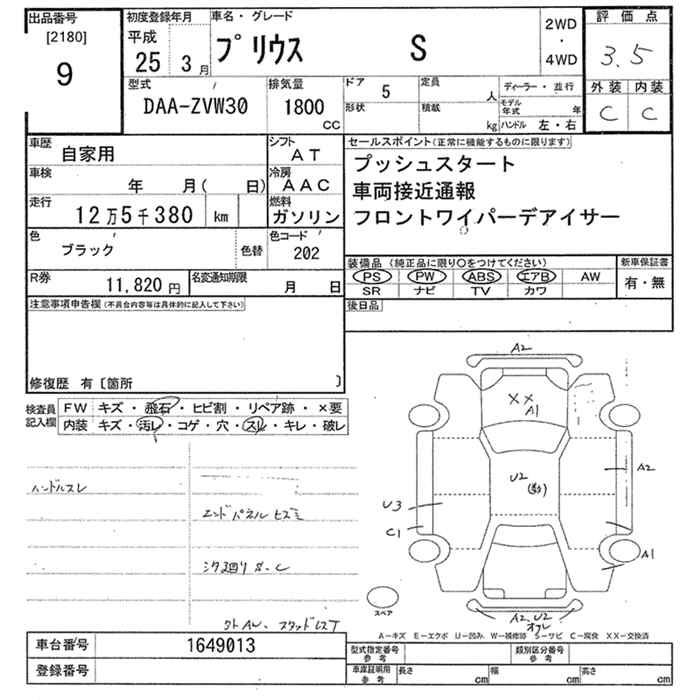 出品番号
[2180]
9
初度登録年月
平成
25 3月
車名・グレード
プリウス S
2WD
・
4WD
評価点
3.5
外装 内装
C C
型式
DAA-ZVW30
排気量
1800
CC
ドア 5
形状
定員
人
積載
kg
ディーラー・並行
モデル年式 年
ハンドル 左・右
車歴
自家用
シフト
AT
車検
年 月( 日)
冷房
AAC
走行
12万5千380 km
燃料
ガソリン
色
ブラック
色替
色コード
202
R券
11,820円
名変通知期限
月 日
セールスポイント(正常に機能するものに限ります)
プッシュスタート
車両接近通報
フロントワイパーデアイサー
装備品(純正品に限り○をつけてください)
PS PW ABS エアB AW
SR ナビ TV カワ
新車保証書
有・無
後日品
注意事項申告欄(不具合内容等は具体的に記入して下さい)
修復歴 有〔箇所 〕
検査員
記入欄
FW キズ・飛石・ヒビ割・リペア跡・×要
内装 キズ・汚レ・コゲ・穴・スレ・キレ・破レ
ハンドルスレ
エンドパネルヒズミ
シタ廻りS.C
外AW、スタッドレスT
A2
XX
A1
U2
A2
U3
C1
A1
A2、U2
スペア
A－キズ E－エクボ U－凹み W－補修跡 S－サビ C－腐食 XX－交換済
車台番号 1649013
登録番号
型式指定番号
参考
類別区分番号
参考
車庫証明用
参考
長さ cm 幅 cm 高さ cm